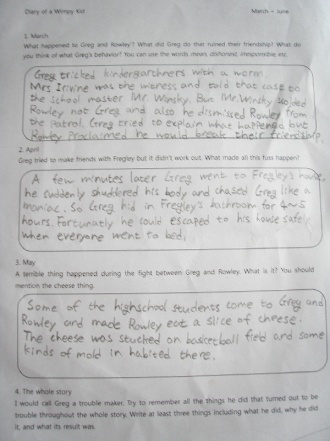 Diary of a Wimpy Kid March – June
1. March
What happened to Greg and Rowley? What did Greg do that ruined their friendship? What do
you think of what Greg's behavior? You can use the words mean, dishonest, inseparative etc.
Greg tricked kindergartners with a worm
Mrs Irvine was the witness and told that case to
the school master Mr. Winsky. But Mr. Winsky scolded
Rowley not Greg and also he dismissed Rowley from
the Patrol. Greg tried to explain what happened but
Rowley proclaimed he would break their friendship.
2. April
Greg tried to make friends with Fregley but it didn't work out. What made all this fuss happen?
A few minutes later Greg went to Fregley's house,
he suddenly shuddered his body and chased Greg like a
maniac. So Greg hid in Fregley's bathroom for 4~5
hours. Fortunately he could escaped to his house safely
when everyone went to bed.
3. May
A terrible thing happened during the fight between Greg and Rowley. What is it? You should
mention the cheese thing.
Some of the highschool students come to Greg and
Rowley and made Rowley eat a slice of cheese.
The cheese was stuched on basketball field and some
kinds of mold in habited there.
4. The whole story
I would call Greg a trouble maker. Try to remember all the things he did that turned out to be
trouble throughout the whole story. Write at least three things including what he did, why he did
it, and what its result was.